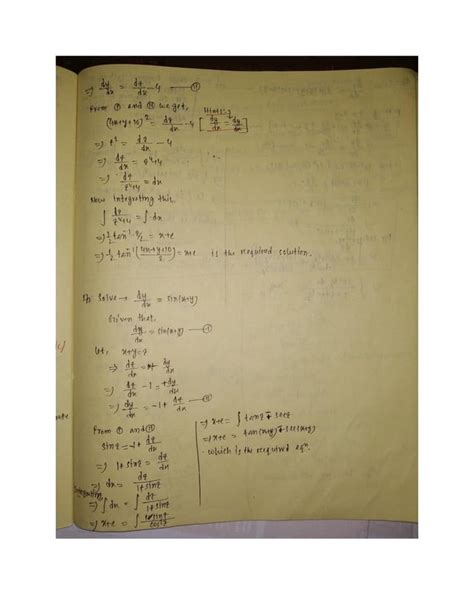 ⇒ dy/dx = dz/dx - 4 —(II)
From (I) and (II) we get,
(4x+y+10)² = dz/dx - 4 [Hints:→ dy/dx = dy/dx]
⇒ z² = dz/dx - 4
⇒ dz/dx = z²+4
⇒ dz/z²+4 = dx
Now integrating this.
∫ dz/z²+4 = ∫ dx
⇒ 1/2 tan⁻¹ z/2 = x+c
⇒ 1/2 tan⁻¹(4x+y+10/2) = x+c is the required solution.
Solve → dy/dx = sin(x+y)
Given that,
dy/dx = sin(x+y) —(I)
let, x+y=z
⇒ dz/dx - 1 = +dy/dx
⇒ dy/dx = -1+ dz/dx —(II)
From (I) and (II)
sinz = -1+ dz/dx
⇒ 1+sinz = dz/dx
⇒ dx = dz/1+sinz
Integrating
⇒ ∫dx = ∫ dz/1+sinz
⇒ x+c = ∫ 1-sinz/cos²z
⇒ x+c = ∫ tanz - secz
⇒ x+c = tan(x+y) - sec(x+y)
. which is the required eqⁿ.